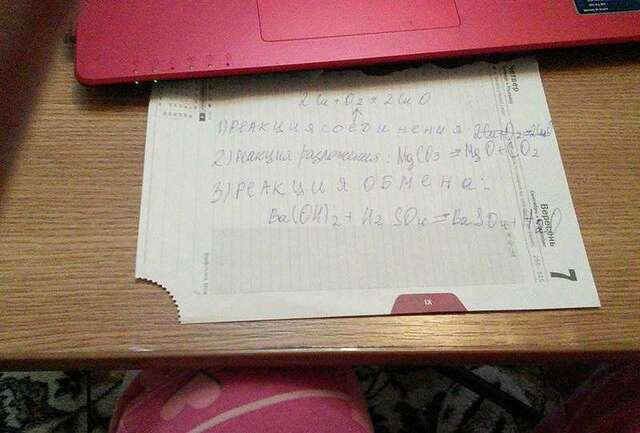 2Cu + O2 = 2CuO
1) РЕАКЦИЯ соединения 2Cu+O2=2CuO
2) Реакция разложения: MgCO3 = MgO + CO2
3) РЕАКЦИЯ ОБМЕНА:
Ba(OH)2 + H2SO4 = BaSO4 + H2O
Четвер
Вересень
7
IX